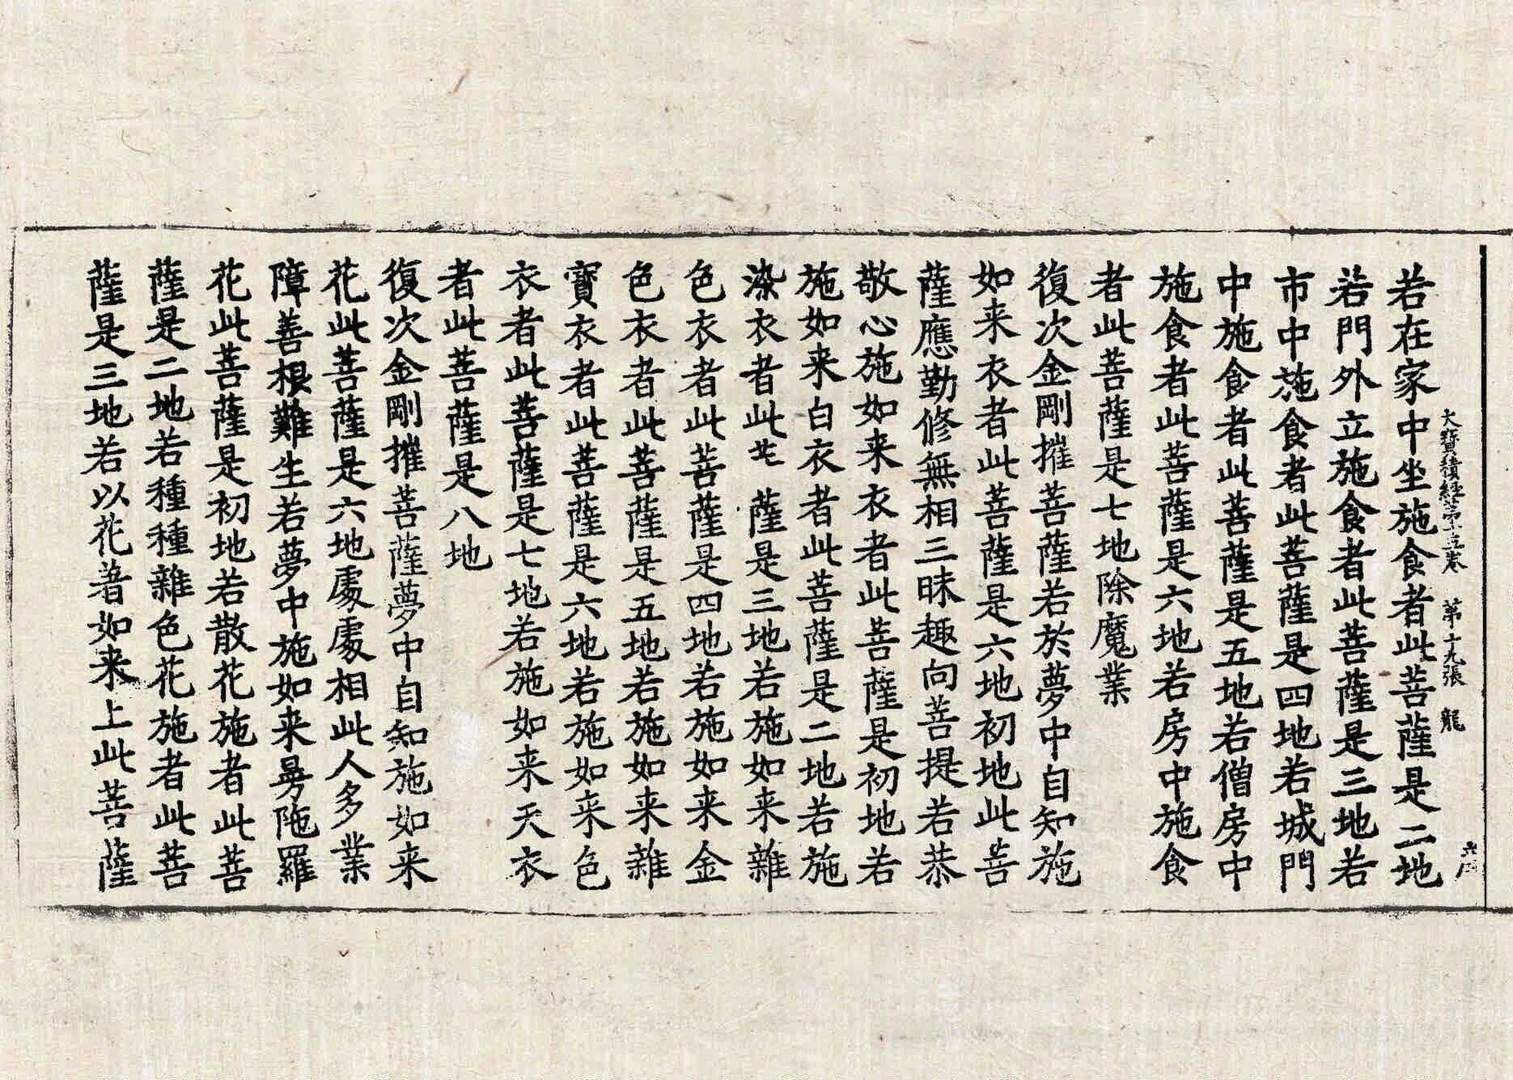 若在家中坐施食者此菩薩是二地
大寶積經第十五卷 第十九張 龍
若門外立施食者此菩薩是三地若
市中施食者此菩薩是四地若城門
中施食者此菩薩是五地若僧房中
施食者此菩薩是六地若房中施食
者此菩薩是七地除魔業
復次金剛摧菩薩若於夢中自知施
如来衣者此菩薩是六地初地此菩
薩應勤修無相三昧趣向菩提若恭
敬心施如来衣者此菩薩是初地若
施如来白衣者此菩薩是二地若施
染衣者此芒薩是三地若施如来雜
色衣者此菩薩是四地若施如来金
色衣者此菩薩是五地若施如来雜
寶衣者此菩薩是六地若施如来色
衣者此菩薩是七地若施如来天衣
者此菩薩是八地
復次金剛摧菩薩夢中自知施如来
花此菩薩是六地處處相此人多業
障善根難生若夢中施如来曼陁羅
花此菩薩是初地若散花施者此菩
薩是二地若種種雜色花施者此菩
薩是三地若以花著如来上此菩薩